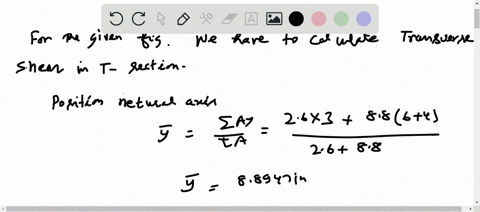 For the given fig. We have to calculate Transverse
Shear in T- section.
Position netural axis
ȳ = ΣAy / ΣA = 2.6×3 + 8.8(6+4) / 2.6+ 8.8
ȳ = 8.8947in